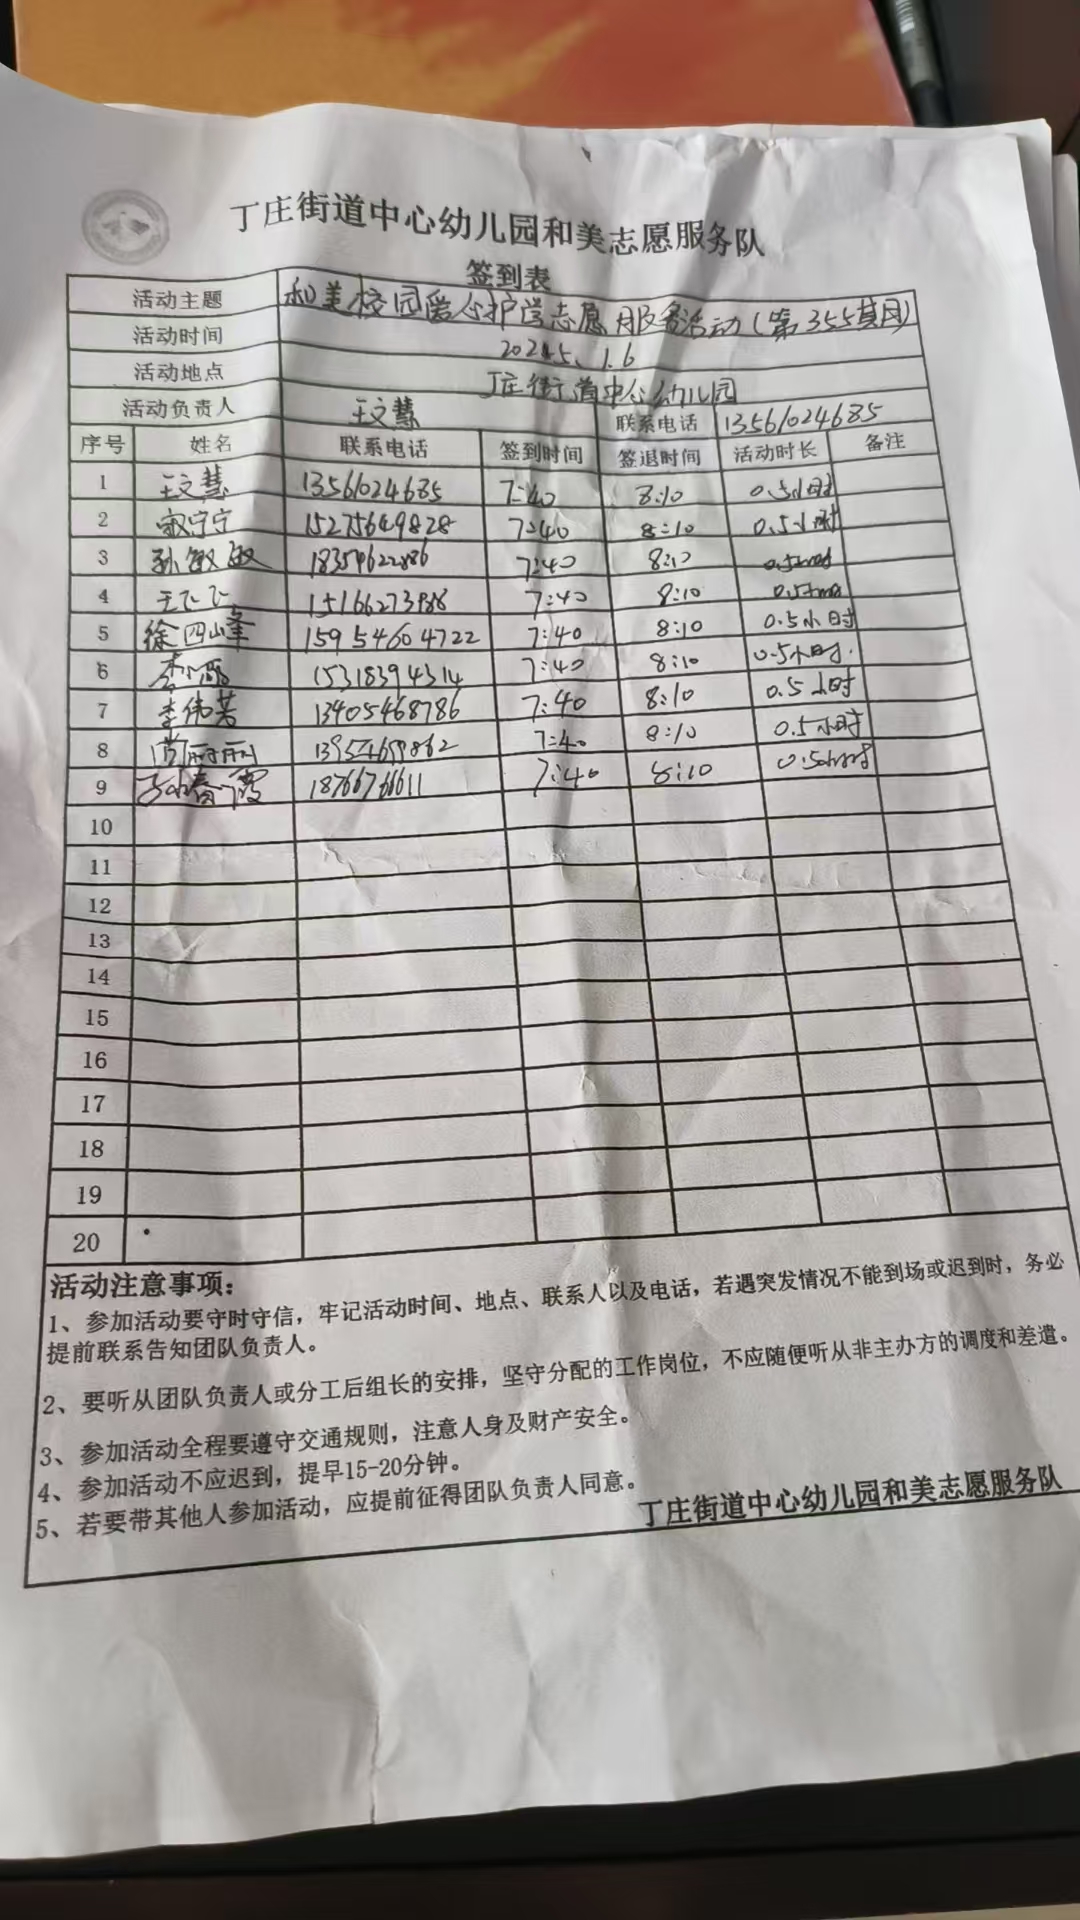 丁庄街道中心幼儿园和美志愿服务队
签到表
活动主题 和美校园爱心护学志愿服务活动(第355期)
活动时间 2025、1.6
活动地点 丁庄街道中心幼儿园
活动负责人 王文慧 联系电话 13561024685
序号 姓名 联系电话 签到时间 签退时间 活动时长 备注
1 王文慧 13561024685 7:40 8:10 0.5小时
2 宁宁 15275649828 7:40 8:10 0.5小时
3 孙敏敏 7:40 8:10 0.5小时
4 王飞飞 7:40 8:10 0.5小时
5 徐四峰 15954604722 7:40 8:10 0.5小时
6 15318394314 7:40 8:10 0.5小时.
7 李伟芳 13405468786 7:40 8:10 0.5小时
8 尚丽丽 7:40 8:10 0.5小时
9 孙春霞 18766766611 7:40 8:10 0.5小时
10
11
12
13
14
15
16
17
18
19
20
活动注意事项：
1、参加活动要守时守信，牢记活动时间、地点、联系人以及电话，若遇突发情况不能到场或迟到时，务必
提前联系告知团队负责人。
2、要听从团队负责人或分工后组长的安排，坚守分配的工作岗位，不应随便听从非主办方的调度和差遣。
3、参加活动全程要遵守交通规则，注意人身及财产安全。
4、参加活动不应迟到，提早15-20分钟。
5、若要带其他人参加活动，应提前征得团队负责人同意。
丁庄街道中心幼儿园和美志愿服务队